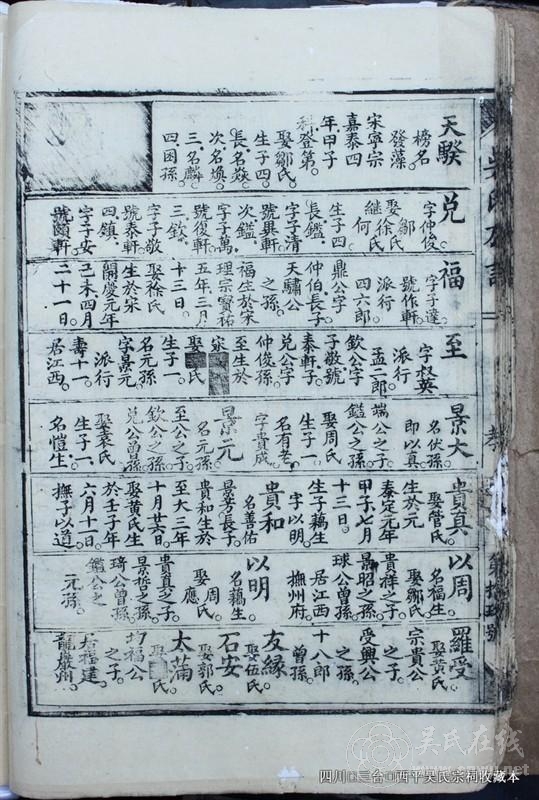 天騤
榜名
發藻。
宋寧宗
嘉泰四
年。甲子
科登第。
娶鄒氏。
生子四。
長名焱。
次名煥。
三名麟。
四困孫
兌
字仲俊。
娶鄒氏
徐氏
繼何氏
生子四。
長鑑。
字子清
號異軒。
次鑑。
字子萬。
號復軒。
三欽。
字子敬
號泰軒。
四鎮
字子安
號頤軒。
福
字子達。
號作軒。
派行
四六郎
鼎公字
仲伯長子
天驌公
之孫。
福生於宋
理宗寶祐
五年三月
十三日。
娶徐氏
生於宋
開慶元年
己未四月
二十一日。
至
字叔英
派行
孟二郎。
欽公字
子敬。號
泰軒子。
兌公字
仲俊孫。
至生於
宋
娶 氏
生子一。
名元孫
字景元
派行
壽十一。
居江西。
景大
名伏孫。
即以真
端公之子。
鑑公之孫
娶周氏
生子一。
名有老。
字貴成。
景元
名元孫。
至公之子。
欽公之孫
兌公曾孫
娶袁氏
生子一。
名愷生。
貴真
娶管氏
生於元
泰定元年
甲子七月
十三日。
生子藕生
字以明。
貴和
名善佑
景芳長子
貴和生於
至大三年
十月廿六日。
娶黃氏生
於壬子年
六月十一日。
撫子以道
以周
名福生。
娶鄒氏
貴祥之子。
景昭之孫。
球公曾孫
居江西
撫州府。
以明
名藕生
娶周氏
應
貴真之子
景哲之孫
琦公曾孫
鑑公之
元孫。
羅受
娶黃氏
宗貴公
之子。
受興公
之孫。
十八郎
曾孫。
友緣
娶伍氏
石安
娶郭氏
太滿
娶 氏
均福公
之子。
居福建
龍巖州。
吳氏族譜
四川□三台□西平吳氏宗祠收藏本
吴氏在线